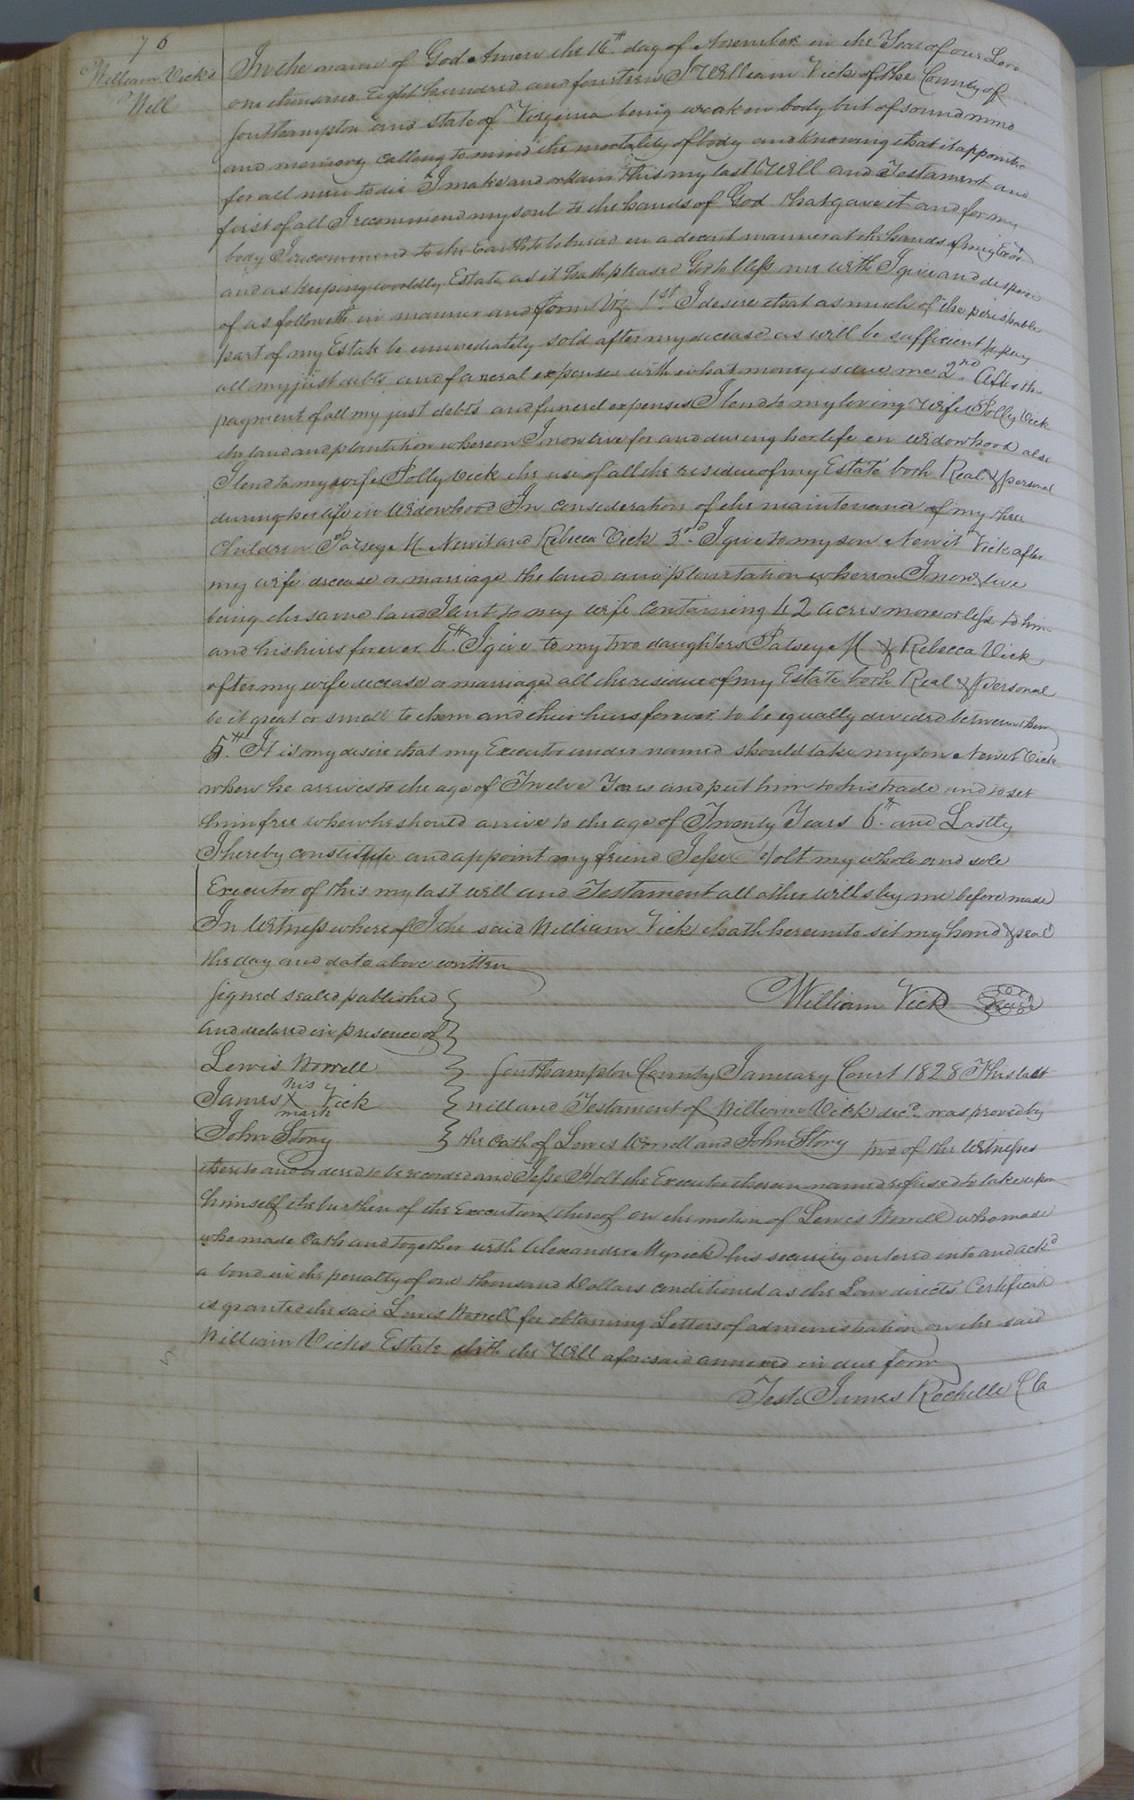 76
William Vick's
Will
In the name of God Amen the 16th day of November in the Year of our Lord
one thousand Eight hundred and fourteen I William Vick of the County of
Southampton and state of Virginia being weak in body but of sound mind
and memory calling to mind the mortality of body and knowing that it appointed
for all men to die I make and ordain this my last Will and Testament and
first of all I recommend my soul to the hands of God that gave it and for my
body I recommend to the Earth to be buried in a decent manner at the hands of my Exor
and as keeping worldly Estate as it hath pleased God to bless me with I give and dispose
of as followeth in manner and form Viz. 1st I desire that as much of the perishable
part of my Estate be immediately sold after my decease as will be sufficient to pay
all my just debts and funeral expenses with what money is due me 2nd After the
payment of all my just debts and funerel expenses I lend to my loving wife Polly Vick
the land and plantation whereon I now live for and during her life or widowhood also
I lend to my wife Polly Vick the use of all the residue of my Estate both Real & personal
during her life or widowhood In consideration of the maintenance of my three
Children Patsey M. Newit and Rebecca Vick 3rd I give to my son Newit Vick after
my wife decease or marriage the land and plantation whereon I now live
being the same land I lent to my wife containing 42 acres more or less to him
and his heirs forever 4th I give to my two daughters Patsey M & Rebecca Vick
after my wife decease or marriage all the residue of my Estate both Real & Personal
be it great or small to them and their heirs forever to be equally divided between them
5th It is my desire that my Executor under named should take my son Newit Vick
when he arrives to the age of Twelve Years and put him to his trade and to set
him free when he should arrive to the age of Twenty Years 6th and Lastly
I hereby constitute and appoint my friend Jesse Holt my whole and sole
Executor of this my last will and Testament all other wills by me before made
In Witness whereof I the said William Vick hath hereunto set my hand & seal
the day and date above written
Signed sealed published
William Vick Seal
and declared in presence of
Lewis Worrell
his
James X Vick
mark
John Story
Southampton County January Court 1828 This last
will and Testament of William Vick decd. was proved by
the oath of Lewis Worrell and John Story two of the Witnesses
thereto and ordered to be recorded and Jesse Holt the Executor therein named refused to take upon
himself the burthen of the Execution thereof on the motion of Lewis Worrell who made
who made Oath and together with Alexander Myrick his security entered into and ackd
a bond in the penalty of one thousand Dollars conditioned as the Law directs Certificate
is granted the said Lewis Worrell for obtaining Letters of administration on the said
William Vicks Estate with the Will aforesaid annexed in due form
Teste James Rochelle Cl